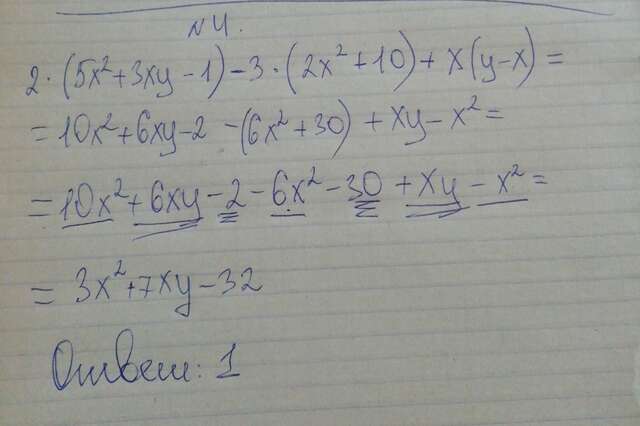 №4.
2·(5x²+3xy-1)-3·(2x²+10)+x(y-x)=
=10x²+6xy-2-(6x²+30)+xy-x²=
=10x²+6xy-2-6x²-30+xy-x²=
=3x²+7xy-32
Ответ: 1